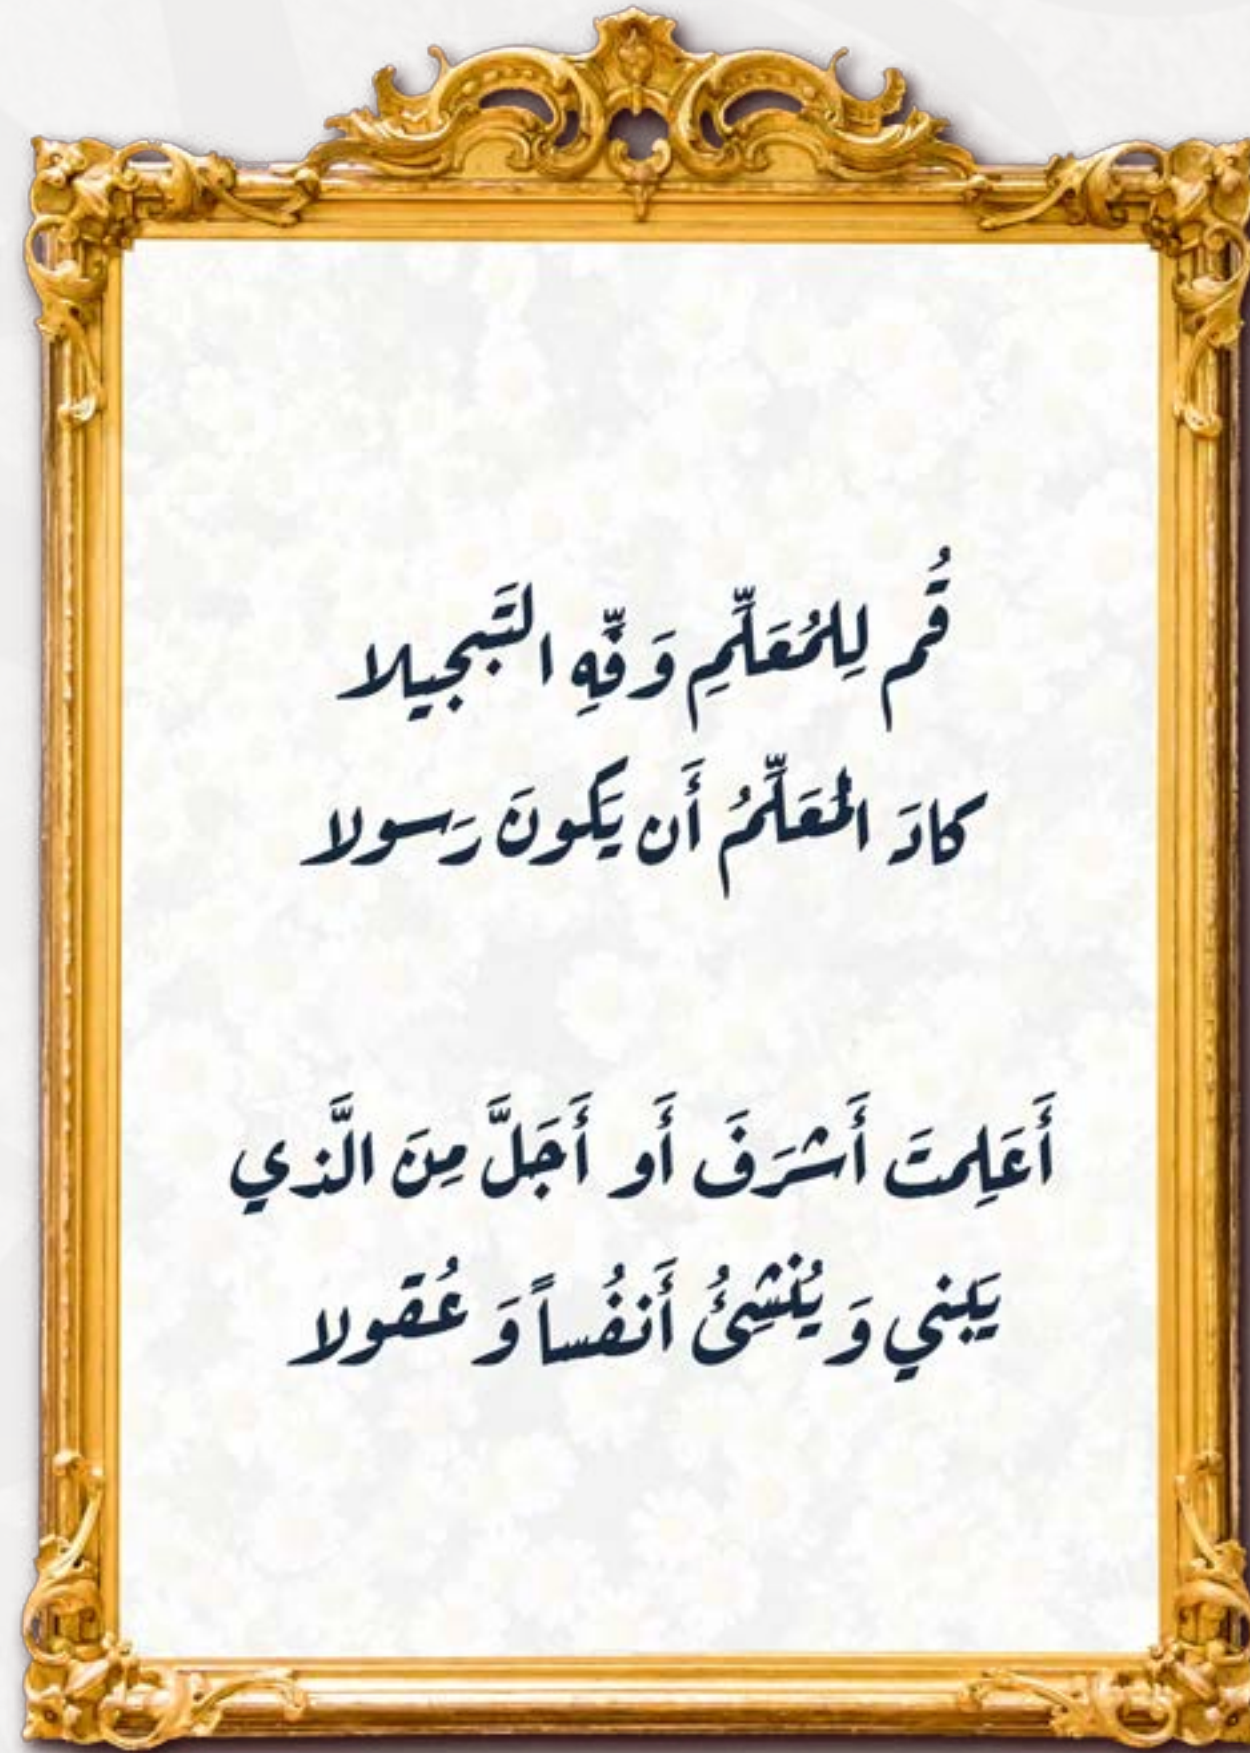 قُم لِلمُعَلِّمِ وَفِّهِ التَبجيلا
كادَ المُعَلِّمُ أَن يَكونَ رَسولا
أَعَلِمتَ أَشرَفَ أَو أَجَلَّ مِنَ الَّذي
يَبني وَيُنشِئُ أَنفُساً وَعُقولا